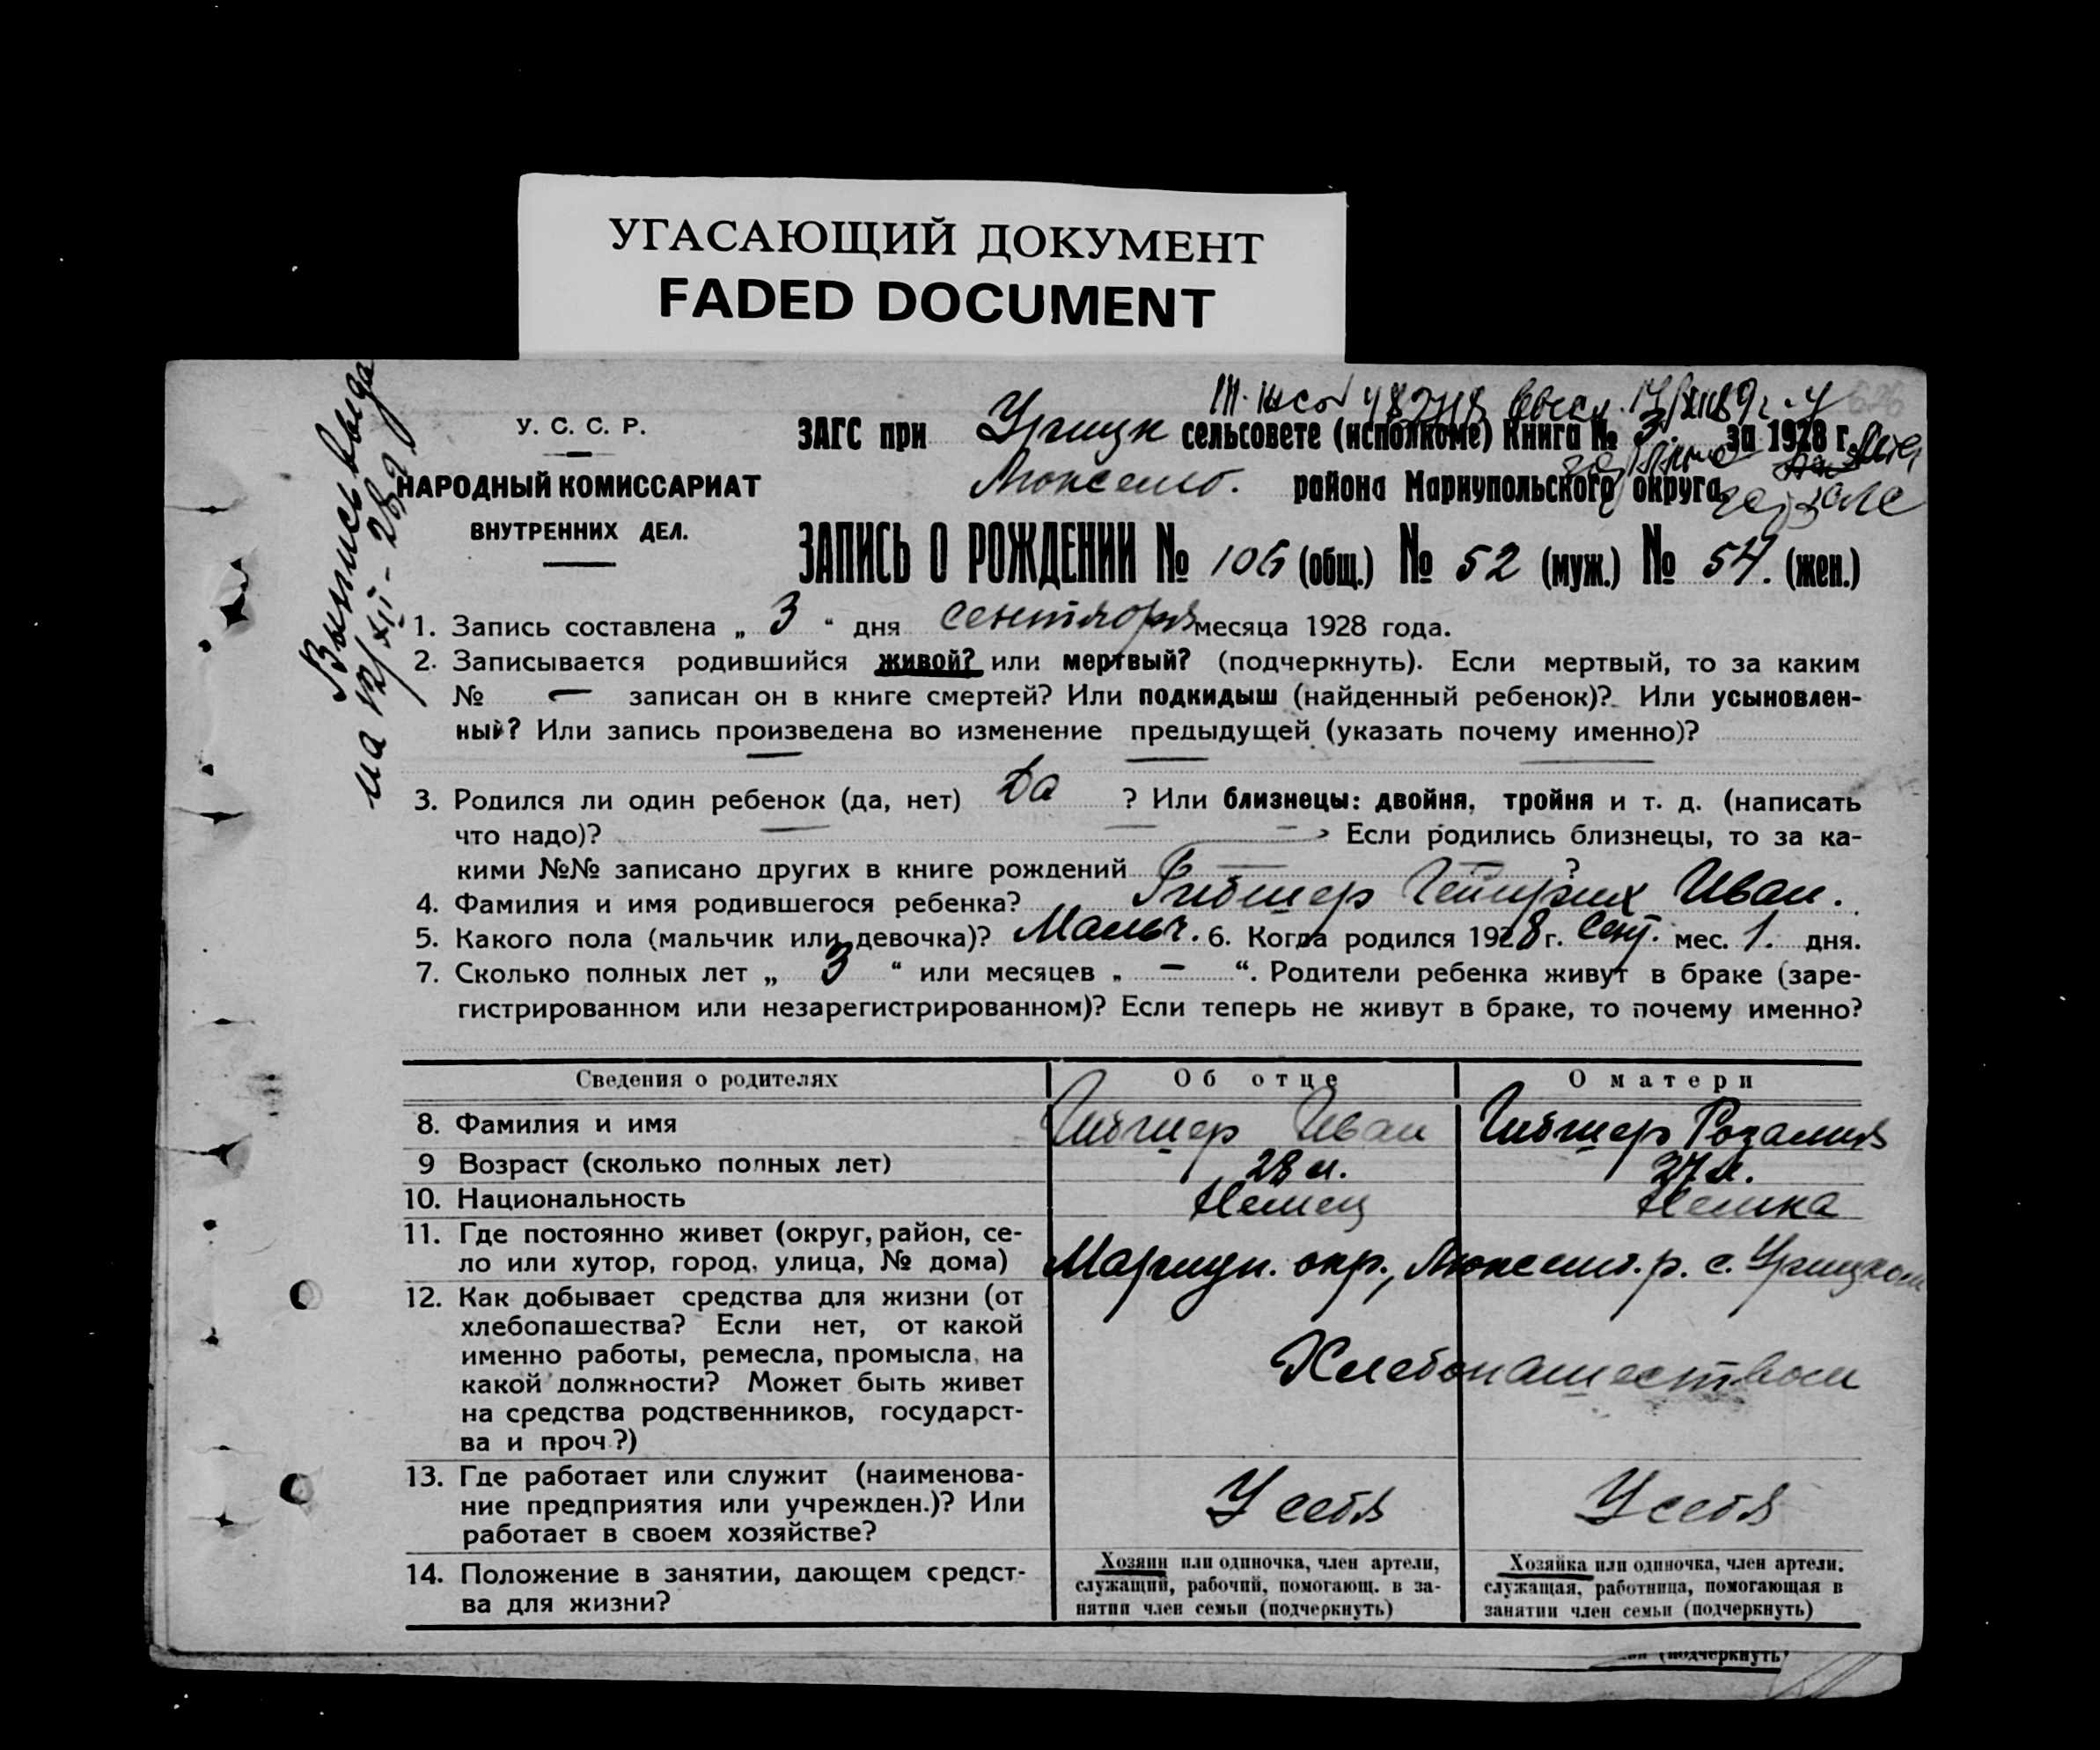 УГАСАЮЩИЙ ДОКУМЕНТ
FADED DOCUMENT
Выпись выда
на 12/XII-28
У. С. С. Р.
НАРОДНЫЙ КОМИССАРИАТ
ВНУТРЕННИХ ДЕЛ.
ЗАГС при Урицк сельсовете (исполкоме) Книга № 3. за 1928 г.
Люксемб. района Мариупольского округа
ЗАПИСЬ О РОЖДЕНИИ № 106 (общ.) № 52 (муж.) № 54. (жен.)
1. Запись составлена „ 3 “ дня сентября месяца 1928 года.
2. Записывается родившийся живой? или мертвый? (подчеркнуть). Если мертвый, то за каким
№ — записан он в книге смертей? Или подкидыш (найденный ребенок)? Или усыновлен-
ный? Или запись произведена во изменение предыдущей (указать почему именно)?
3. Родился ли один ребенок (да, нет) Да ? Или близнецы: двойня, тройня и т. д. (написать
что надо)? — Если родились близнецы, то за ка-
кими №№ записано других в книге рождений — ?
4. Фамилия и имя родившегося ребенка? Гибнер Гейнрих Иван.
5. Какого пола (мальчик или девочка)? Мальч. 6. Когда родился 1928 г. Сент. мес. 1. дня.
7. Сколько полных лет „ 3 “ или месяцев „ — “. Родители ребенка живут в браке (заре-
гистрированном или незарегистрированном)? Если теперь не живут в браке, то почему именно?
Сведения о родителях Об отце О матери
8. Фамилия и имя Гибнер Иван Гибнер Розалия
9 Возраст (сколько полных лет) 28 л. 27 л.
10. Национальность Немец Немка
11. Где постоянно живет (округ, район, се-
ло или хутор, город, улица, № дома) Мариуп. окр., Люксемб. р. с. Урицком
12. Как добывает средства для жизни (от
хлебопашества? Если нет, от какой
именно работы, ремесла, промысла, на
какой должности? Может быть живет
на средства родственников, государст-
ва и проч?)
Хлебопашеством
13. Где работает или служит (наименова-
ние предприятия или учрежден.)? Или
работает в своем хозяйстве?
У себя У себя
14. Положение в занятии, дающем средст-
ва для жизни?
Хозяин или одиночка, член артели,
служащий, рабочий, помогающ. в за-
нятии член семьи (подчеркнуть)
Хозяйка или одиночка, член артели,
служащая, работница, помогающая в
занятии член семьи (подчеркнуть)
(подчеркнуть)